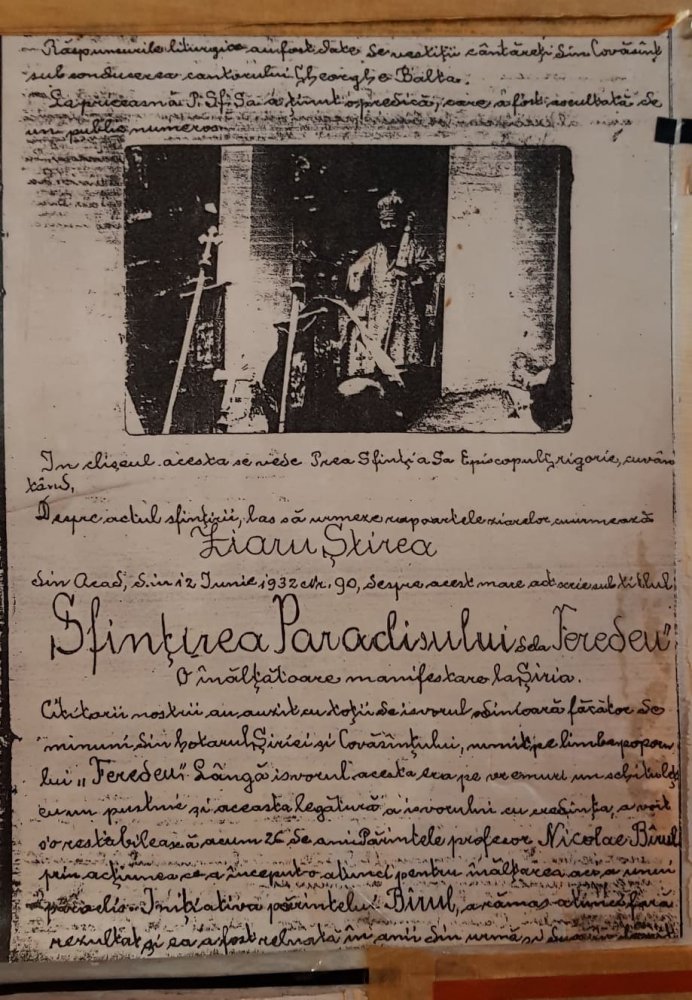 Răspunsurile liturgice au fost date de vestiții cântăreți din Covăsânț
sub conducerea cantorului Gheorghe Balta.
La priceasnă P. Sf. Sa a ținut o predică, care a fost ascultată de
un public numeros
In clișeul acesta se vede Prea Sfinția Sa Episcopul Grigorie, cuvân
tând,
Despre actul sfințirii, las să urmeze rapoartele ziarelor cu urmează
Ziaru Știrea
din Arad, din 12 Iunie 1932 Nr. 90, despre acest mare act scrie sub titlul:
„Sfințirea Paradisului dela Feredeu"
O înălțătoare manifestare la Șiria.
Cititorii noștrii au auzit cu toții de isvorul odinioară făcător de
minuni din hotarul Șiriei și Covăsînțului, numit pe limba poporu
lui „Feredeu". Lângă isvorul acesta era pe vremuri un schituleț
cu un pustnic și aceasta legătură a isvorului cu credința, a voit
s'o restabilească acum 26 de ani Părintele profesor Nicolae Bîrul
prin acțiunea ce a început-o atunci pentru înălțarea aci a unui
paradis. Inițiativa părintelui Bîrul, a rămas atunci fără
rezultat și ea a fost reluată în anii din urmă și